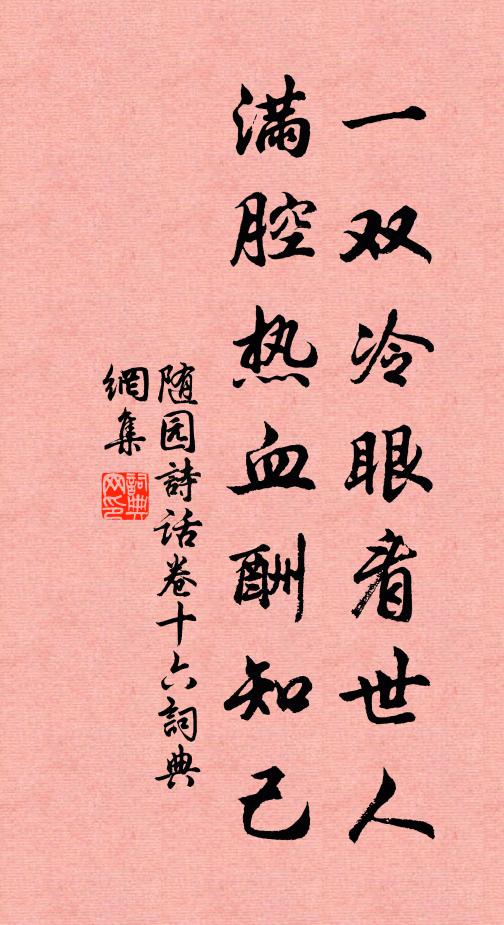 一双冷眼看世人
满腔热血酬知己
随园詩话卷十六詞典
網集
詞典
网印